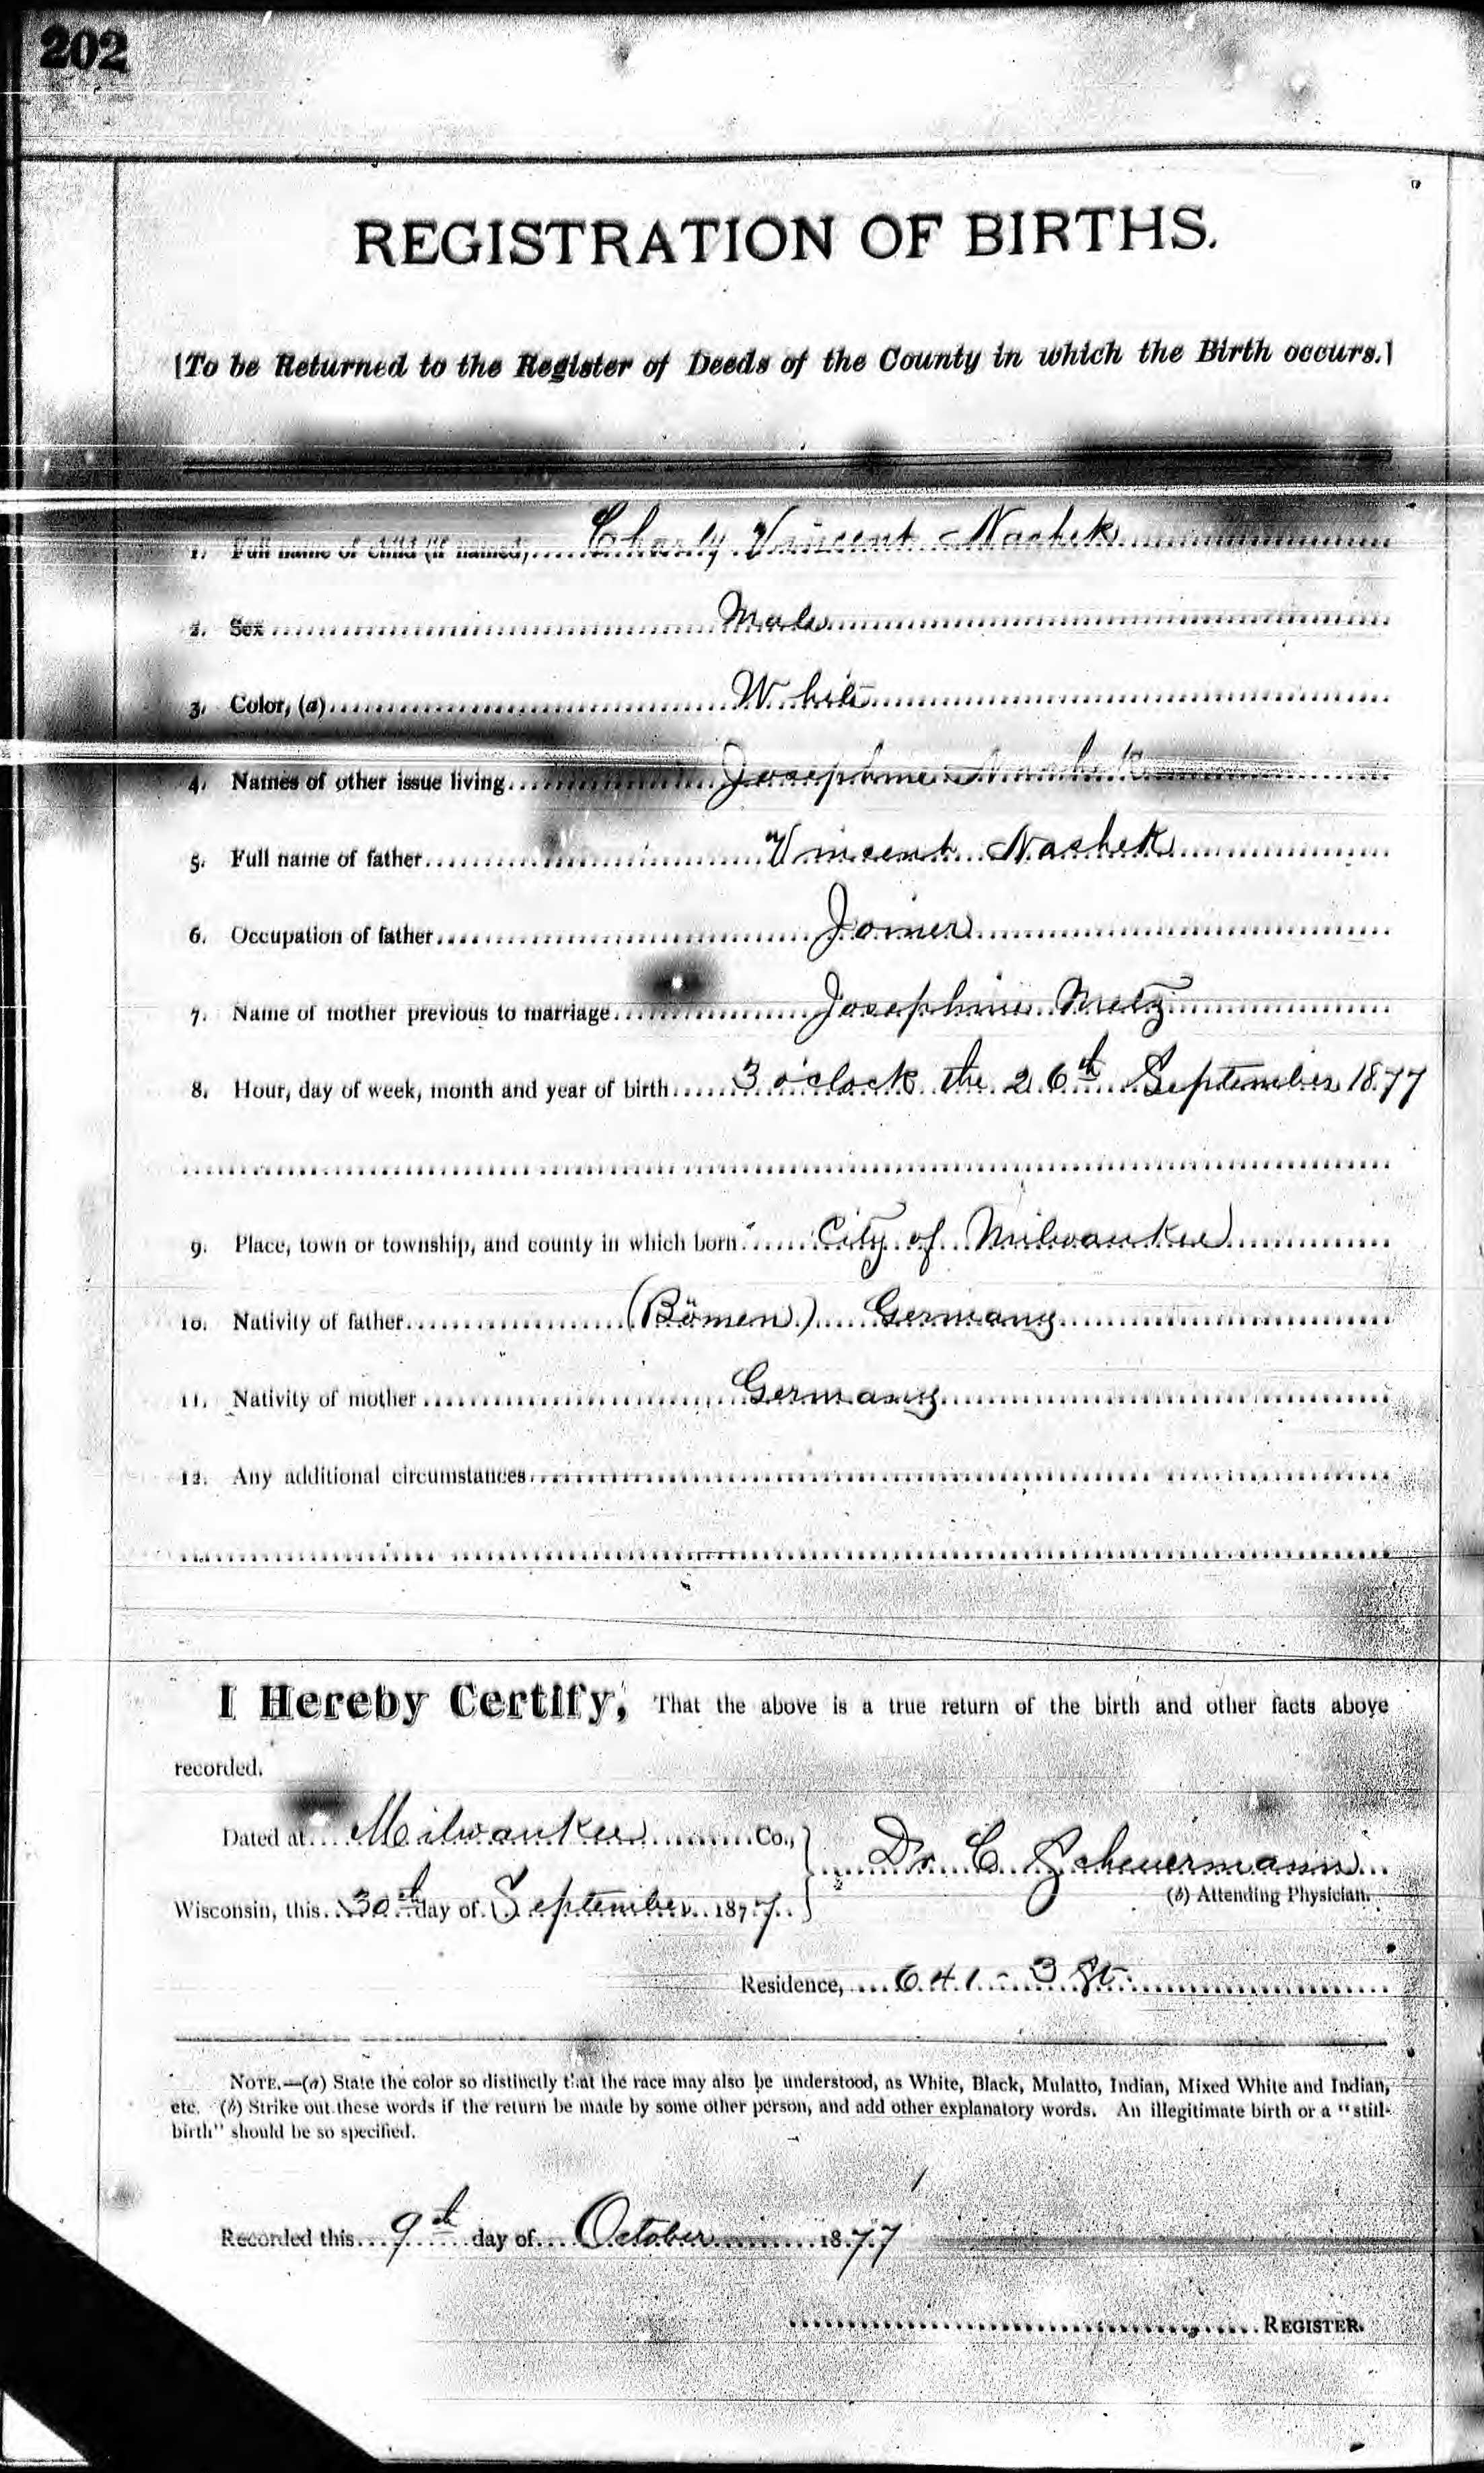 202
REGISTRATION OF BIRTHS.
[To be Returned to the Register of Deeds of the County in which the Birth occurs.]
1. Full name of child (if named) Charly Vincent Nashek
2. Sex Male
3. Color, (a) White
4. Names of other issue living Josephine Nashek
5. Full name of father Vincent Nashek
6. Occupation of father Joiner
7. Name of mother previous to marriage Josephine Metz
8. Hour, day of week, month and year of birth 3 o'clock the 26th September 1877
9. Place, town or township, and county in which born City of Milwaukee
10. Nativity of father (Bömen) Germany
11. Nativity of mother Germany
12. Any additional circumstances
I Hereby Certify, That the above is a true return of the birth and other facts above
recorded.
Dated at Milwaukee Co.,
Dr. C. Scheuermann
Wisconsin, this 30th day of September 1877
(b) Attending Physician.
Residence, 641 - 3 St.
NOTE.—(a) State the color so distinctly that the race may also be understood, as White, Black, Mulatto, Indian, Mixed White and Indian,
etc. (b) Strike out these words if the return be made by some other person, and add other explanatory words. An illegitimate birth or a "still-
birth" should be so specified.
Recorded this 9th day of October 1877
REGISTER.